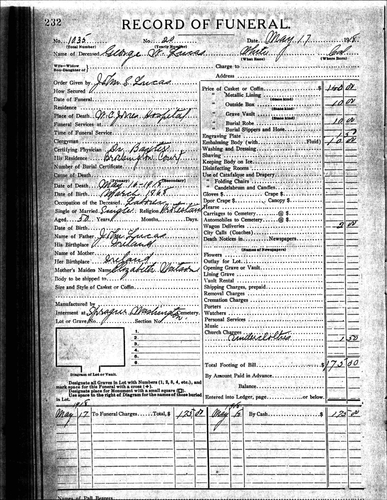 232
RECORD OF FUNERAL.
No. 1035 No. Date May 17 1918
(Total Number) (Yearly Number)
Name of Deceased George W. Lucas White
(What Race) (Where Born)
Charge to
Address
Order Given by John E. Lucas
How Secured
Date of Funeral
Residence
Place of Death Hospital
Funeral Services at
Time of Funeral Service
Clergyman
Certifying Physician Dr. Baxter
His Residence Court
Number of Burial Certificate
Cause of Death
Date of Death May 16-1918
Date of Birth March 1868
Occupation of the Deceased Laborer
Single or Married Single Religion Protestant
Aged 50 Years Months Days
Date of Birth
Name of Father John Lucas
His Birthplace Ireland
Name of Mother
Her Birthplace Ireland
Mother's Maiden Name Elizabeth Watson
Body to be shipped to
Size and Style of Casket or Coffin
Manufactured by
Interment at Sprague Washington Cemetery
Lot or Grave No. Section No.
1.
2.
3.
4.
5.
6.
Diagram of Lot or Vault.
Designate all Graves in Lot with Numbers (1, 2, 3, 4, etc.), and
mark space for this Funeral with a cross (+).
Designate place for Monument with a small square
Use space to the right of Diagram for the names of those buried
in Lot.
Price of Casket or Coffin $ 140 00
Metallic Lining
Outside Box 10 00
Grave Vault
Burial Robe 10 00
Burial Slippers and Hose
Engraving Plate 1 50
Embalming Body (with Fluid) 10 00
Washing and Dressing
Shaving
Keeping Body on Ice
Disinfecting Rooms
Use of Catafalque and Drapery
" Folding Chairs
" Candelabrum and Candles
Gloves $ Crape $
Door Crape $ Canopy $
Hearse
Carriages to Cemetery @ $
Automobiles to Cemetery @ $
Wagon Deliveries 2 00
City Calls (Coaches)
Death Notices in Newspapers
(Names of Newspapers)
Flowers
Outlay for Lot
Opening Grave or Vault
Lining Grave
Vault Rental
Shipping Charges, prepaid
Removal Charges
Cremation Charges
Porters
Watchers
Personal Services
Music
Church Charges
Underclothes 1 50
Total Footing of Bill $ 175 00
By Amount Paid in Advance
Balance
Entered into Ledger, page or below.
1918
May 17 To Funeral Charges Total, $ 175 00 May By Cash $ 175 00
Names of Pall Bearers